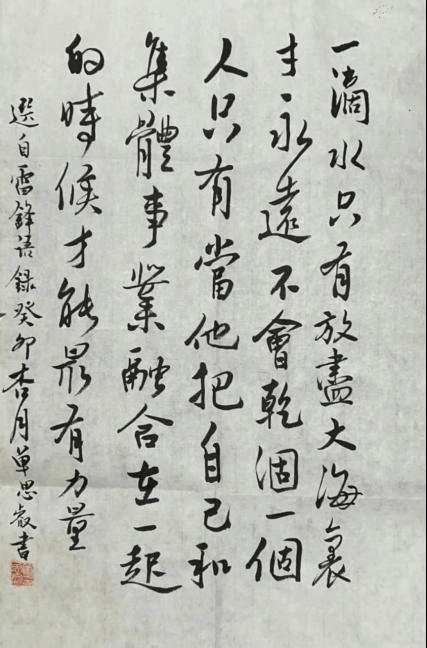 一滴水只有放盡大海裏
才永遠不會乾涸一個
人只有當他把自己和
集體事業融合在一起
的時候才能最有力量
選自雷鋒語錄癸卯杏月單思書